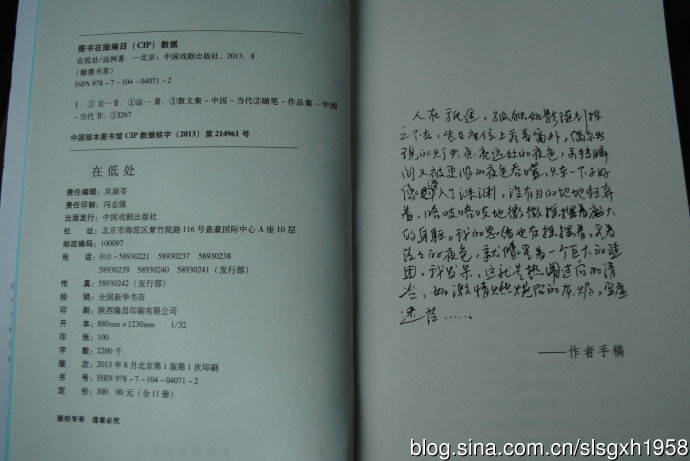 图书在版编目（CIP）数据
在低处/远洲著. —北京：中国戏剧出版社，2013.8
（翰墨书萃）
ISBN 978-7-104-04071-2
Ⅰ.①在…Ⅱ.①远… Ⅲ.①散文集-中国-当代②随笔-作品集-中国
-当代 Ⅳ.①I267
中国版本图书馆 CIP 数据核字（2013）第 214961 号
在低处
责任编辑：吴淑苓
责任印制：冯志强
出版发行：中国戏剧出版社
社 址：北京市海淀区紫竹院路 116 号嘉豪国际中心 A 座 10 层
邮政编码：100097
电 话：010-58930221 58930237 58930238
58930239 58930240 58930241（发行部）
传 真：58930242（发行部）
经 销：全国新华书店
印 刷：陕西隆昌印刷有限公司
开 本：880mm×1230mm 1/32
印 张：100
字 数：2200 千
版 次：2013 年 8 月北京第 1 版第 1 次印刷
书 号：ISBN 978-7-104-04071-2
定 价：300.00 元（全 11 册）
版权专有 违者必究
人在旅途，孤独如影随形挥
之不去，坐在座位上看着窗外，偶尔出
现的灯火点亮远处的夜色，
间又被更浓的夜色吞噬，火车一下子好
像进入了深渊，没有目的地地狂奔
着，咯吱咯吱地微微摇摆着庞大
的身躯。我的思绪也在摇摆着，看着
茫茫的夜色，就像看着一个巨大的谜
团，我发呆，这就是热闹过后的清
冷，如激情燃烧后的灰烬，空虚
迷茫……
——作者手稿
blog.sina.com.cn/slsgxh1958